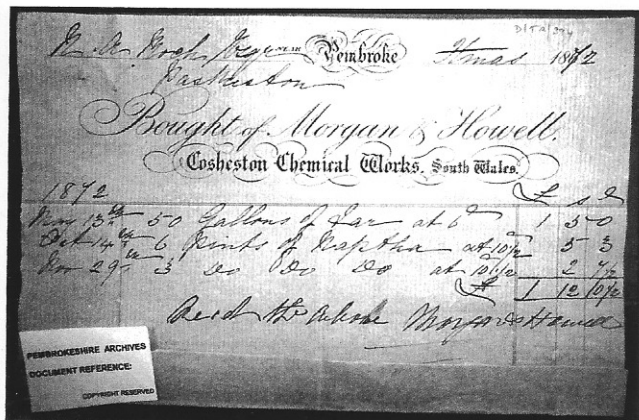 D/TA/374
M. A. Roch Esqr near Pembroke Xmas 1872
Paskeston
Bought of Morgan & Howell.
Cosheston Chemical Works, South Wales.
1872 £ s d
13th 50 Gallons of Tar at 6d 1 5 0
Oct 14th 6 Pints of Naptha at 10 1/2 5 3
Nov 29th 3 Do Do Do at 10 1/2 2 7 1/2
£ 1 12 10 1/2
Recd the above Morgan & Howell
PEMBROKESHIRE ARCHIVES
DOCUMENT REFERENCE:
COPYRIGHT RESERVED